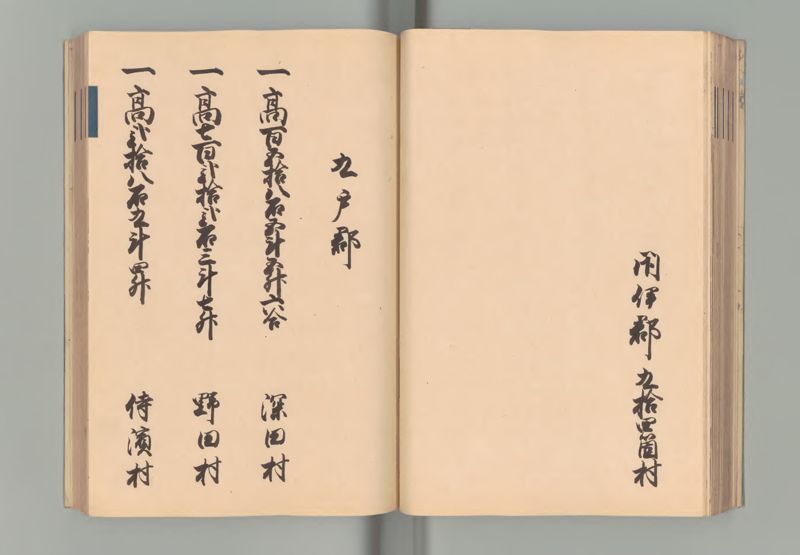 閉伊郡 九拾四箇村
九戸郡
一高百五拾八石五斗五升六合 深田村
一高七百弐拾弐石三斗七升 野田村
一高弐拾八石九斗四升 侍濱村